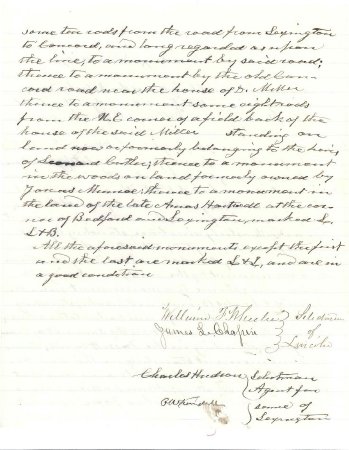 some ten rods from the road from Lexington
to Concord, and long regarded as upon
the line, to a monument by said road;
thence to a monument by the old Con-
cord road near the house of D. Miller
thence to a monument some eight rods
from the N.E corner of a field back of the
house of the said Miller standing on
land now or formerly belonging to the heirs
of Leonard Cutler; thence to a monument
in the woods on land formerly owned by
Jonas Munroe thence to a monument in
the land of the late Amos Hartwell at the cor-
ner of Bedford and Lexington, marked L.
L & B.
All the aforesaid monuments except the first
and the last are marked L & L, and are in
a good condition
William F Wheeler } Selectmen
James L. Chapin } of
} Lincoln
Charles Hudson { Selectman
Agent for
same of
Lexington